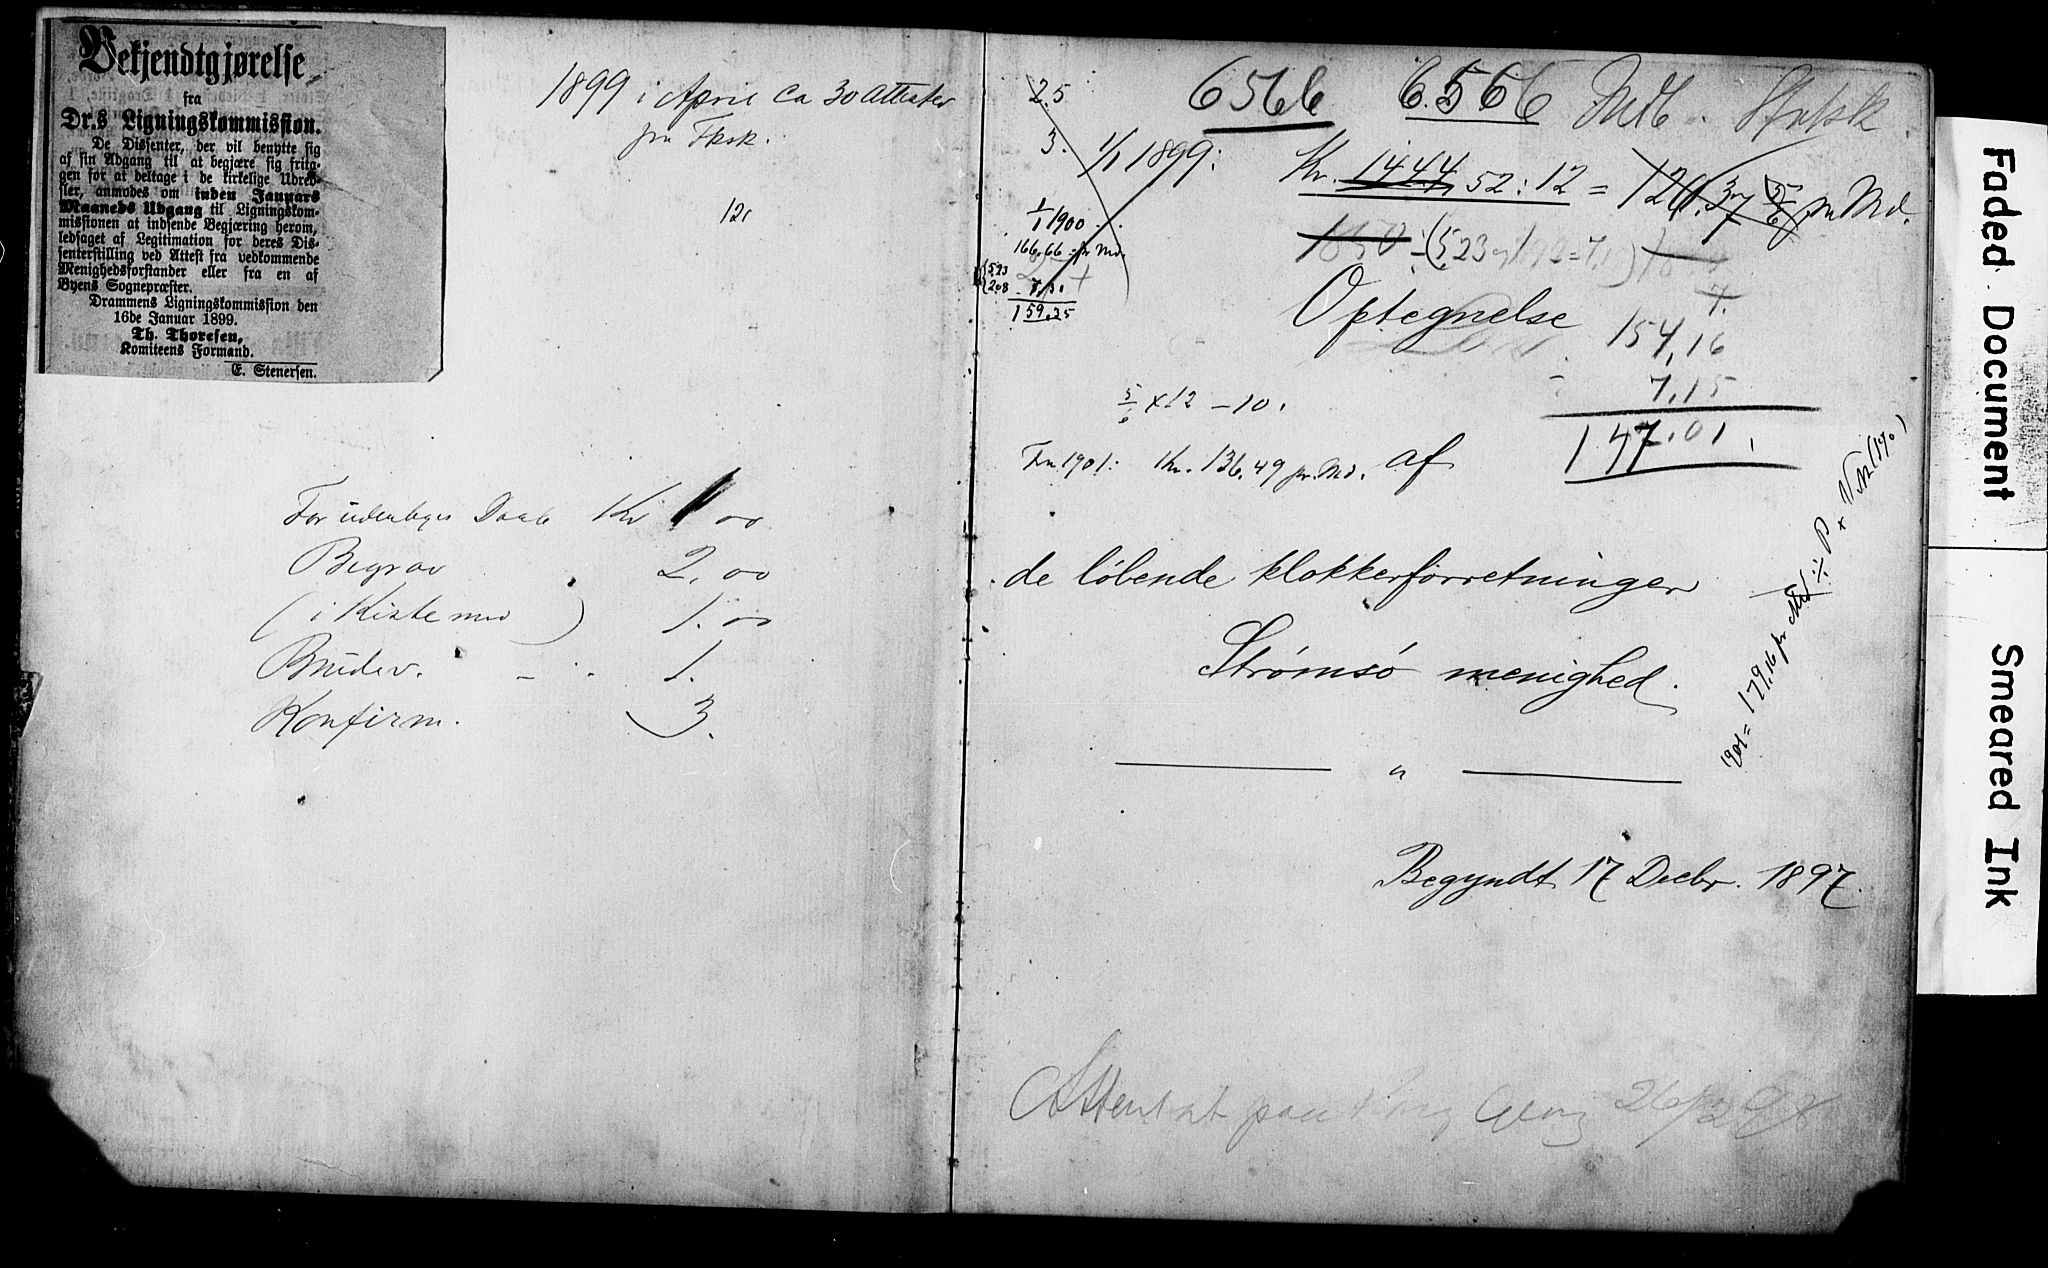 Bekjendtgjørelse
fra
Dr.s Ligningskommission.
De Dissenter, der vil benytte sig
af sin Adgang til at begjære sig frita-
gen for at deltage i de kirkelige Udred-
sler, anmodes om inden Januars
Maaneds Udgang til Ligningskom-
missionen at indsende Begjæring herom,
ledsaget af Legitimation for deres Dis-
senterstilling ved Attest fra vedkommende
Menighedsforstander eller fra en af
Byens Sognepræster.
Drammens Ligningskommission den
16de Januar 1899.
Th. Thoresen,
Komiteens Formand.
E. Stenersen.
1899 i April ca 30 attester
12
For Daab Kr 1 00
Begrav 2,00
(i Kiste med ) 1.00
Brudev. - - 1.
Konfirm. 3.
2.5
3.
6566 6.566
1/1 1899:
Kr. 1444,52:12 = 120.37 5/6 pr Md.
1/1 1900
166,66 pr Md.
5,23
2,08
159.25
7.
Optegnelse
154,16
7,15
147.01
5/6 x 12 - 10.
Fra 1901: Kr. 136.49 pr. Md. af
de løbende klokkerforretninger
Strømsø menighed.
1901 = 179,16 pr Md
Begyndt 17 Decbr. 1897.
Attentat paa Kong Georg 26/2 98
Faded Document
Smeared Ink